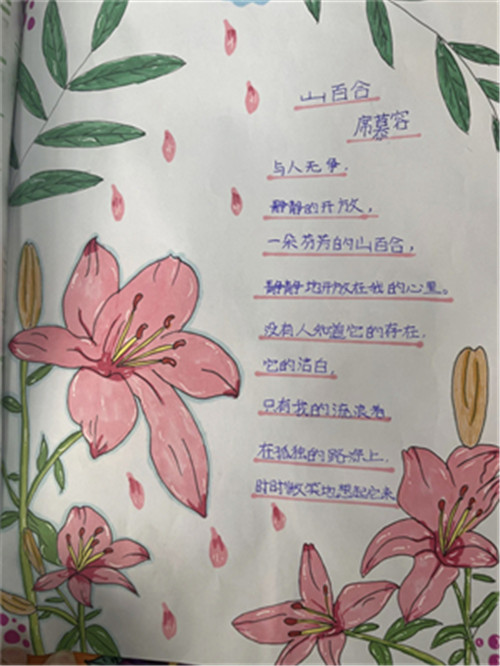 山百合
席慕容
与人无争，
静静的开放，
一朵芬芳的山百合，
静静地开放在我的心里。
没有人知道它的存在，
它的洁白，
只有我的流浪者
在孤独的路途上
时时微笑地想起它来